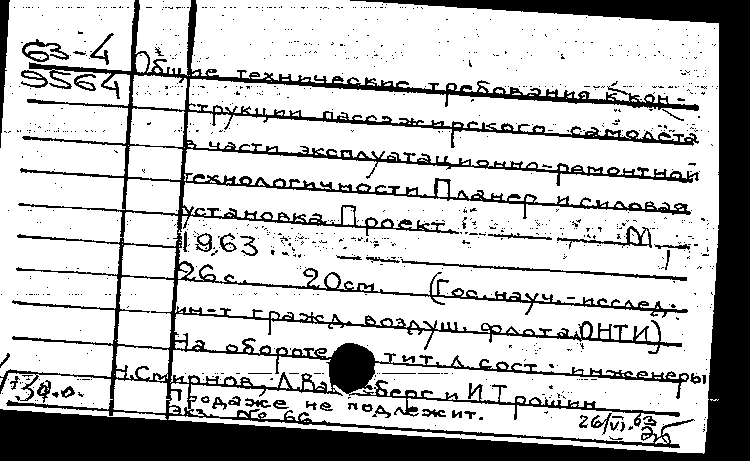 63-4
9564
Общие технические требования к кон-
струкции пассажирского самолета
в части эксплуатационно-ремонтной
технологичности. Планер и силовая
установка. Проект. М.,
1963.
26 с. 20 см. (Гос. науч.-исслед.
ин-т гражд. воздуш. флота. ОНТИ)
На обороте тит. л. сост.: инженеры
Н. Смирнов, Л. и И. Трошин
Продаже не подлежит.
Экз. № 66.
26/VI.63